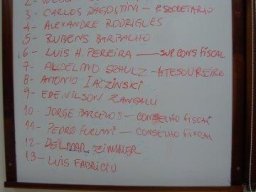 3- CARLOS DAGOSTIM - SECRETARIO
4- ALEXANDRE RODRIGUES
5- RUBENS BARBALHO
6- LUIS H. PEREIRA — SUP CONS FISCAL
7- ALDELAND SCHULZ - TESOUREIRO
8- ANTONIO IACZINSKI
9- EDENILSON ZANGALLI
10- JORGE - CONSELHO FISCAL
11- PEDRO FURLANI - CONSELHO FISCAL
12- DELMAR
13- LUIS FABRICIO